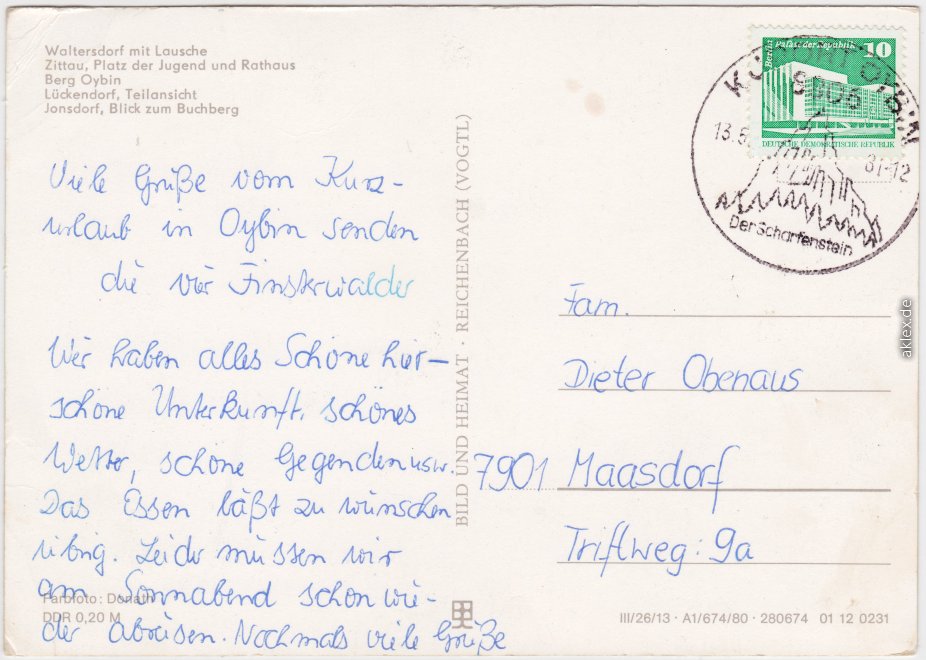 Waltersdorf mit Lausche
Zittau, Platz der Jugend und Rathaus
Berg Oybin
Lückendorf, Teilansicht
Jonsdorf, Blick zum Buchberg
Viele Grüße vom Kurz-
urlaub in Oybin senden
die vier Finsterwalder
Wir haben alles Schöne hier –
schöne Unterkunft, schönes
Wetter, schöne Gegenden usw.
Das Essen läßt zu wünschen
übrig. Leider müssen wir
am Sonnabend schon wie-
der abreisen. Nochmals viele Grüße
Farbfoto: Donath
DDR 0,20 M
BILD UND HEIMAT · REICHENBACH (VOGTL)
Berlin Palast der Republik 10
DEUTSCHE DEMOKRATISCHE REPUBLIK
KURORT OYBIN
9806
13.5. 81-12
Der Scharfenstein
Fam.
Dieter Obenaus
7901 Maasdorf
Triftweg: 9a
III/26/13 · A1/674/80 · 280674 01 12 0231
aklex.de